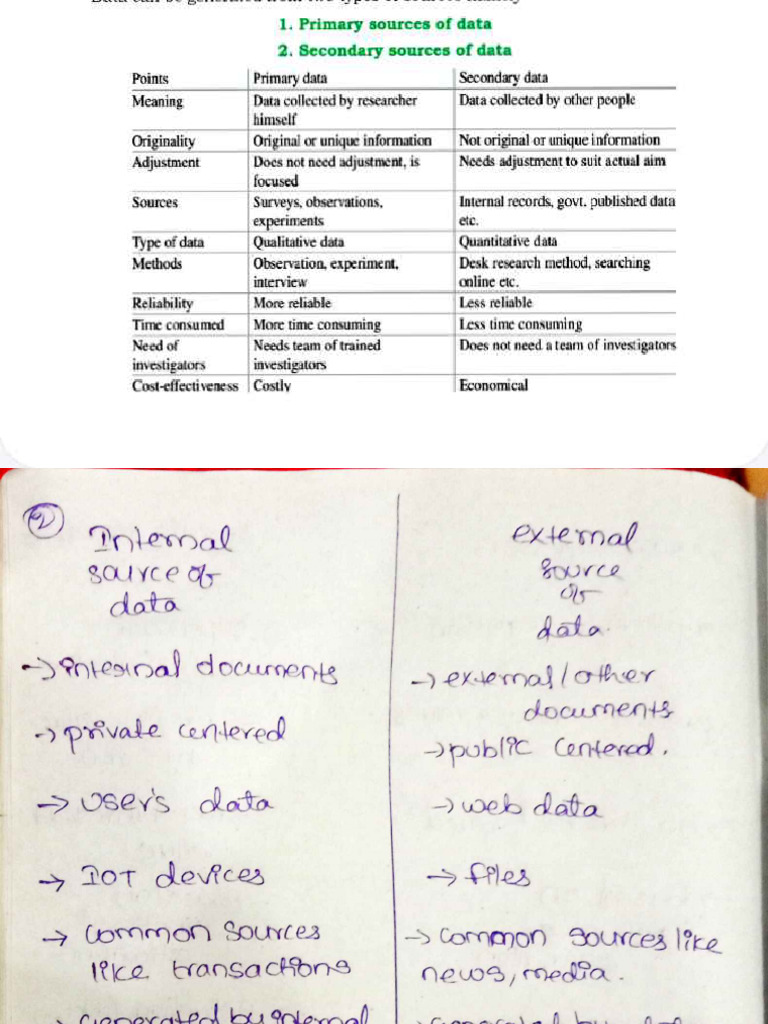 Data can be generated from two types of sources namely
1. Primary sources of data
2. Secondary sources of data
Points Primary data Secondary data
Meaning Data collected by researcher Data collected by other people
himself
Originality Original or unique information Not original or unique information
Adjustment Does not need adjustment, is Needs adjustment to suit actual aim
focused
Sources Surveys, observations, Internal records, govt. published data
experiments etc.
Type of data Qualitative data Quantitative data
Methods Observation, experiment, Desk research method, searching
interview online etc.
Reliability More reliable Less reliable
Time consumed More time consuming Less time consuming
Need of Needs team of trained Does not need a team of investigators
investigators investigators
Cost-effectiveness Costly Economical
2
Internal
source of
data
→ internal documents
→ private centered
→ user's data
→ IOT devices
→ common sources
like transactions
→ Generated by internal
external
source
of
data.
→ external/other
documents
→ public centered.
→ web data
→ files
→ common sources like
news, media.
→ generated by